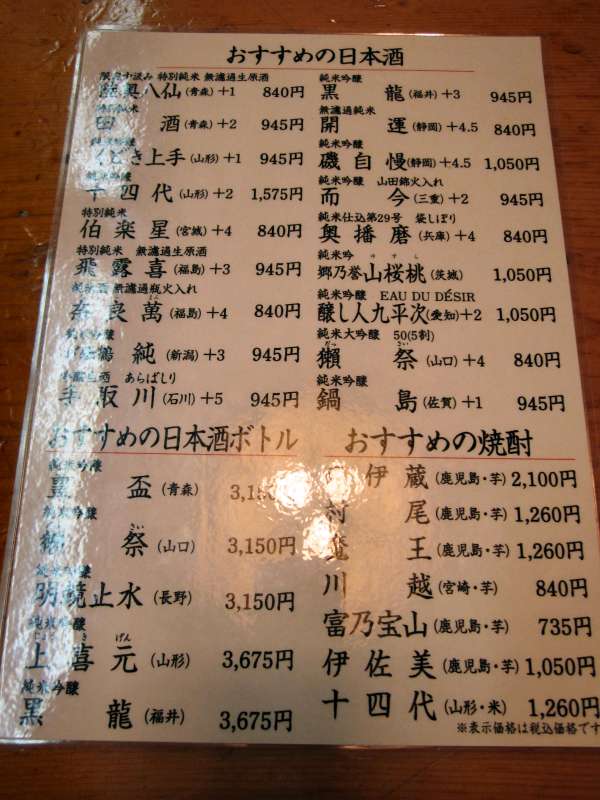 おすすめの日本酒
特別純米 無濾過生原酒
陸奥八仙(青森)+1 840円
田 酒(青森)+2 945円
くどき上手(山形)+1 945円
十四代(山形)+2 1,575円
特別純米
伯楽星(宮城)+4 840円
特別純米 無濾過生原酒
飛露喜(福島)+3 945円
無濾過瓶火入れ
奈良萬(福島)+4 840円
鶴 純(新潟)+3 945円
あらばしり
手取川(石川)+5 945円
純米吟醸
黒 龍(福井)+3 945円
無濾過純米
開 運(静岡)+4.5 840円
純米吟醸
磯自慢(静岡)+4.5 1,050円
純米吟醸 山田錦火入れ
而 今(三重)+2 945円
純米仕込第29号 袋しぼり
奥播磨(兵庫)+4 840円
純米吟
郷乃誉山桜桃(茨城) 1,050円
純米吟醸 EAU DU DÉSIR
醸し人九平次(愛知)+2 1,050円
純米大吟醸 50(5割)
獺 祭(山口)+4 840円
純米吟醸
鍋 島(佐賀)+1 945円
おすすめの日本酒ボトル
純米吟醸
豊 盃(青森)
獺 祭(山口) 3,150円
明鏡止水(長野) 3,150円
純米吟醸
上喜元(山形) 3,675円
純米吟醸
黒 龍(福井) 3,675円
おすすめの焼酎
伊 蔵(鹿児島・芋) 2,100円
村 尾(鹿児島・芋) 1,260円
魔 王(鹿児島・芋) 1,260円
川 越(宮崎・芋) 840円
富乃宝山(鹿児島・芋) 735円
伊佐美(鹿児島・芋) 1,050円
十四代(山形・米) 1,260円
※表示価格は税込価格です